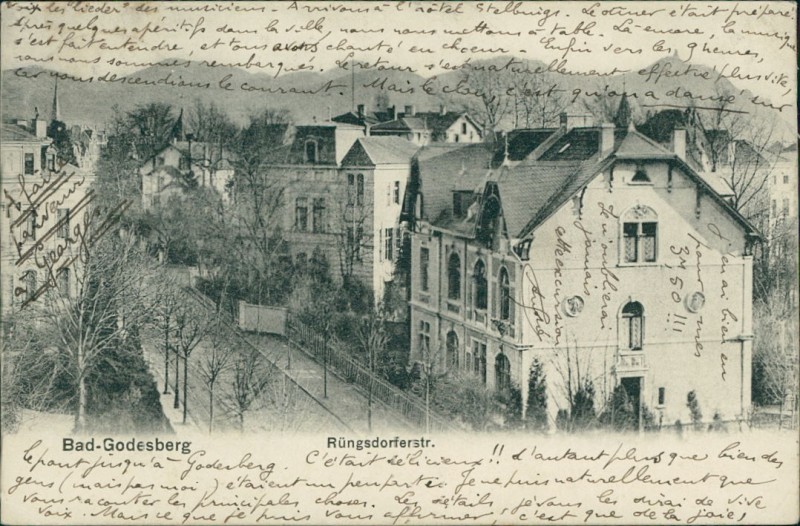 voix les "lieder" des musiciens. Arrivons à l'hôtel. Le dîner était préparé.
Après quelques apéritifs dans la ville, nous nous mettons à table. Là encore, la musique
s'est fait entendre, et tous avons chanté en choeur. Enfin vers les 9 heures,
nous nous sommes rembarqués. Le retour s'est naturellement effectué plus vite,
car nous descendions le courant. Mais le clou, c'est qu'on a dansé sur
à faire
parvenir
à George
j'en ai bien eu
pour mes
34,50 !!!
Je n'oublierai
jamais
cette excursion
Bad-Godesberg
Rüngsdorferstr.
le pont jusqu'à Godesberg. C'était délicieux!! d'autant plus que bien des
gens (mais pas moi) étaient un peu partis. Je ne puis naturellement que
vous raconter les principales choses. Les détails, je vous les dirai de vive
voix. Mais ce que je puis vous affirmer, c'est que de la joies